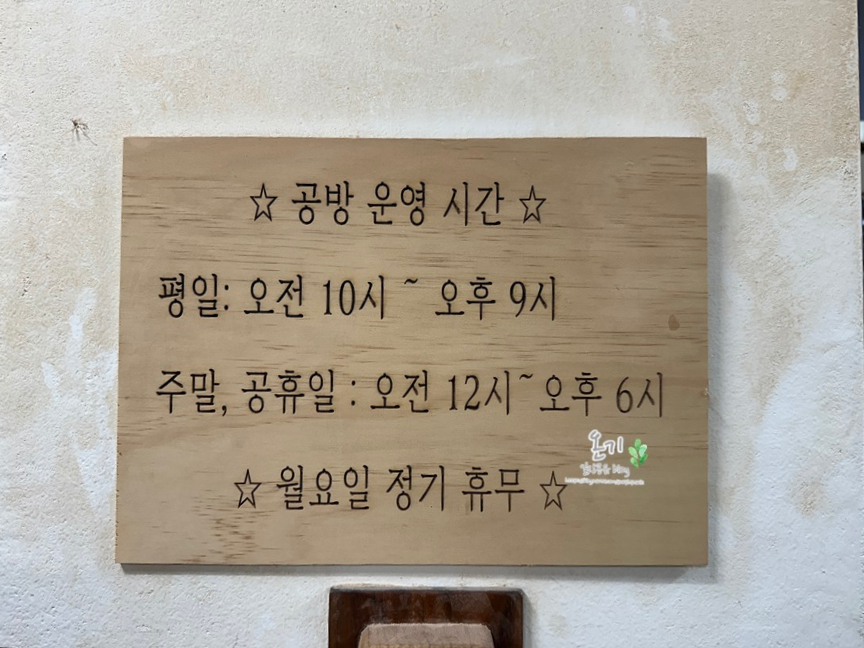 ☆ 공방 운영 시간 ☆
평일: 오전 10시 ~ 오후 9시
주말, 공휴일 : 오전 12시~오후 6시
온기
☆ 월요일 정기 휴무 ☆